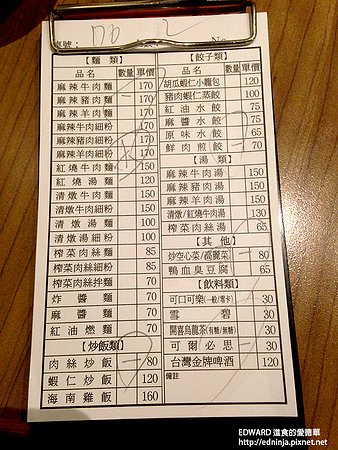 桌號：
No
【麵類】
品名 數量 單價
麻辣牛肉麵 170
麻辣豬肉麵 170
麻辣羊肉麵 170
麻辣牛肉細粉 170
麻辣豬肉細粉 170
麻辣羊肉細粉 170
紅燒牛肉麵 150
紅燒湯麵 120
清燉牛肉麵 150
清燉牛肉細粉 150
清燉湯麵 100
清燉湯細粉 100
榨菜肉絲麵 85
榨菜肉絲細粉 85
榨菜肉絲拌麵 70
炸醬麵 70
麻醬麵 70
紅油燃麵 70
【炒飯類】
肉絲炒飯 一 80
蝦仁炒飯 120
海南雞飯 160
【餃子類】
品名 數量 單價
胡瓜蝦仁小籠包 120
豬肉蝦仁蒸餃 100
紅油水餃 75
麻醬水餃 75
原味水餃 65
鮮肉煎餃 一 70
【湯類】
麻辣牛肉湯 150
麻辣豬肉湯 150
麻辣羊肉湯 150
清燉/紅燒牛肉湯 130
榨菜肉絲湯 65
【其他】
炒空心菜/高麗菜 一 80
鴨血臭豆腐 65
【飲料類】
可口可樂(一般/零卡) 30
雪碧 30
開喜烏龍茶(有糖/無糖) 30
可爾必思 一 30
台灣金牌啤酒 120
備註
EDWARD 進食的愛德華
http://edninja.pixnet.net